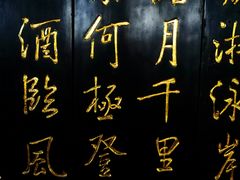 游泳岸
月千里
何極登
酒臨風